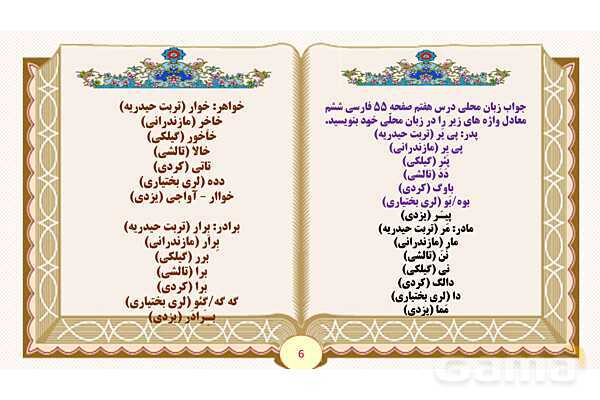 جواب زبان محلی درس هفتم صفحه ۵۵ فارسی ششم
معادل واژه های زیر را در زبان محلّی خود بنویسید.
پدر: پی یَر (تربت حیدریه)
پی یِر (مازندرانی)
پئر (گیلکی)
دَدَ (تالشی)
باوِگ (کردی)
بوه/بَو (لری بختیاری)
پیسَر (یزدی)
مادر: مَر (تربت حیدریه)
مار (مازندرانی)
نَنَ (تالشی)
نی (گیلکی)
دالگ (کردی)
دا (لری بختیاری)
مَما (یزدی)
خواهر: خوار (تربت حیدریه)
خاخِر (مازندرانی)
خاَخور (گیلکی)
خالا (تالشی)
تاتی (کردی)
دده (لری بختیاری)
خواار - آواجی (یزدی)
برادر: برار (تربت حیدریه)
بِرار (مازندرانی)
برر (گیلکی)
برا (تالشی)
برا (کردی)
گه گه/گئو (لری بختیاری)
بـرادر (یزدی)
6
Gama